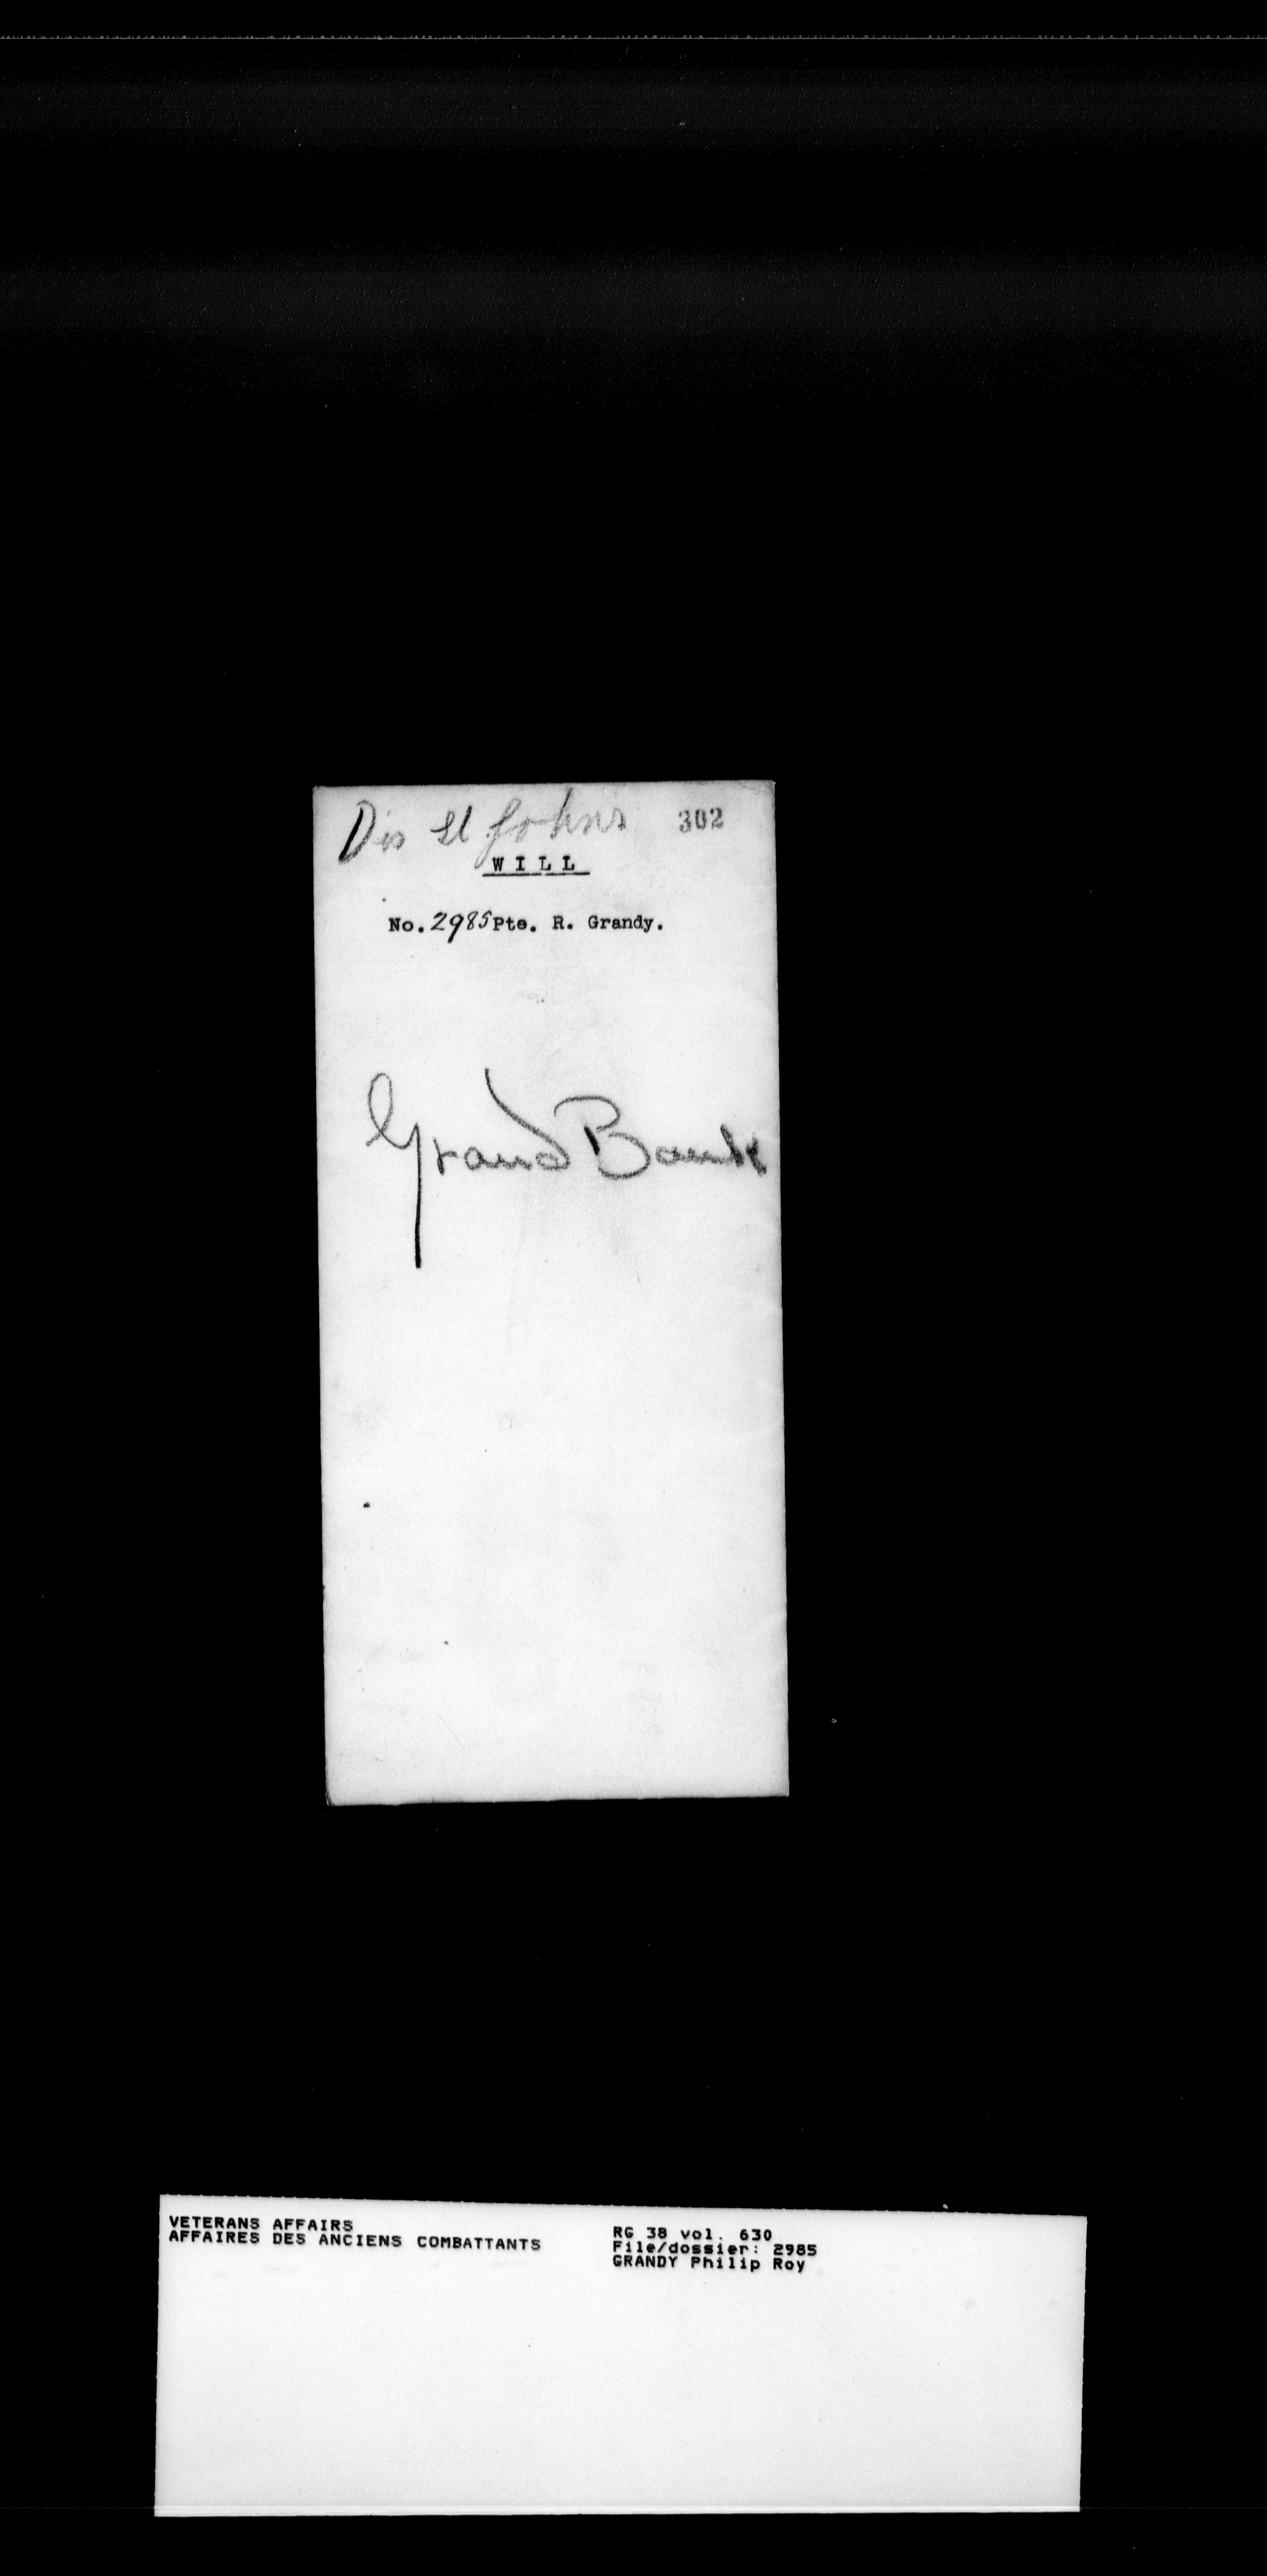 Dis St Johns 302
WILL
No. 2985 Pte. R. Grandy.
Grand Bank
VETERANS AFFAIRS
AFFAIRES DES ANCIENS COMBATTANTS
RG 38 vol. 630
File/dossier: 2985
GRANDY Philip Roy